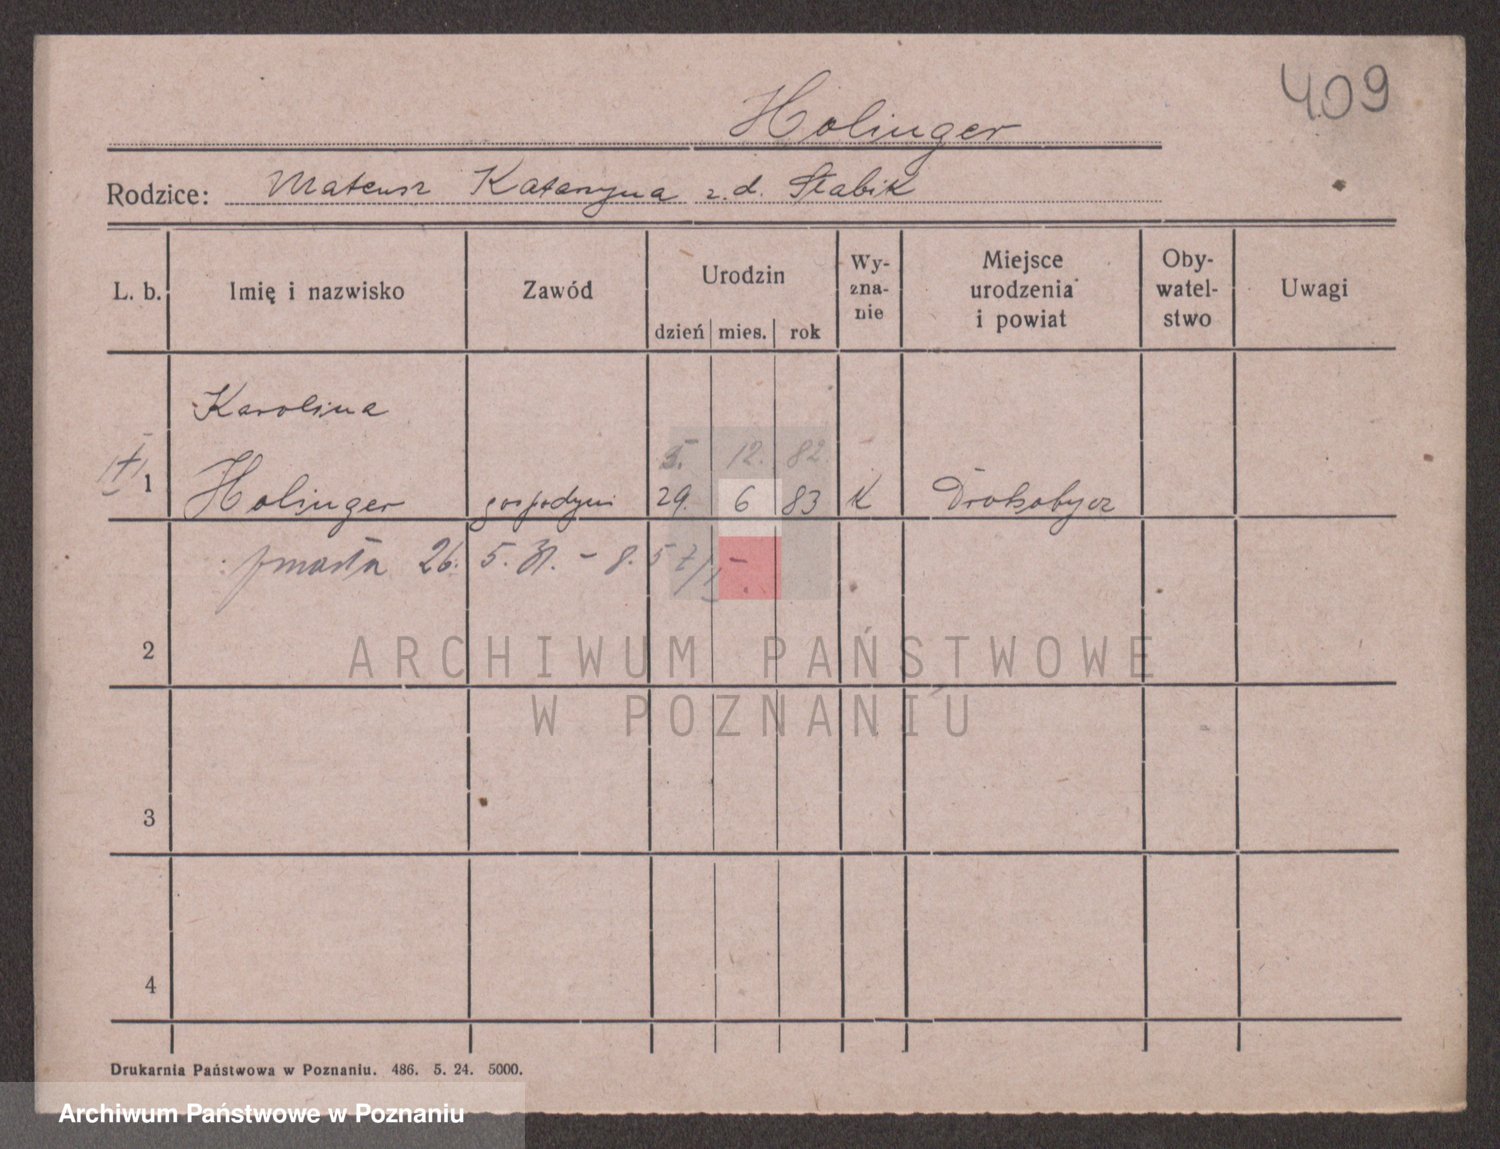 409
Holinger
Rodzice: Mateusz Katarzyna z.d. Słabik
L. b. Imię i nazwisko Zawód Urodzin Wy-zna-nie Miejsce urodzenia i powiat Oby-watel-stwo Uwagi
dzień mies. rok
Karolina
5. 12. 82.
1 Holinger gospodyni 29. 6 83 K Drohobycz
zmarła 26. 5. 31. - 8.
2
ARCHIWUM PAŃSTWOWE
W POZNANIU
3
4
Drukarnia Państwowa w Poznaniu. 486. 5. 24. 5000.
Archiwum Państwowe w Poznaniu